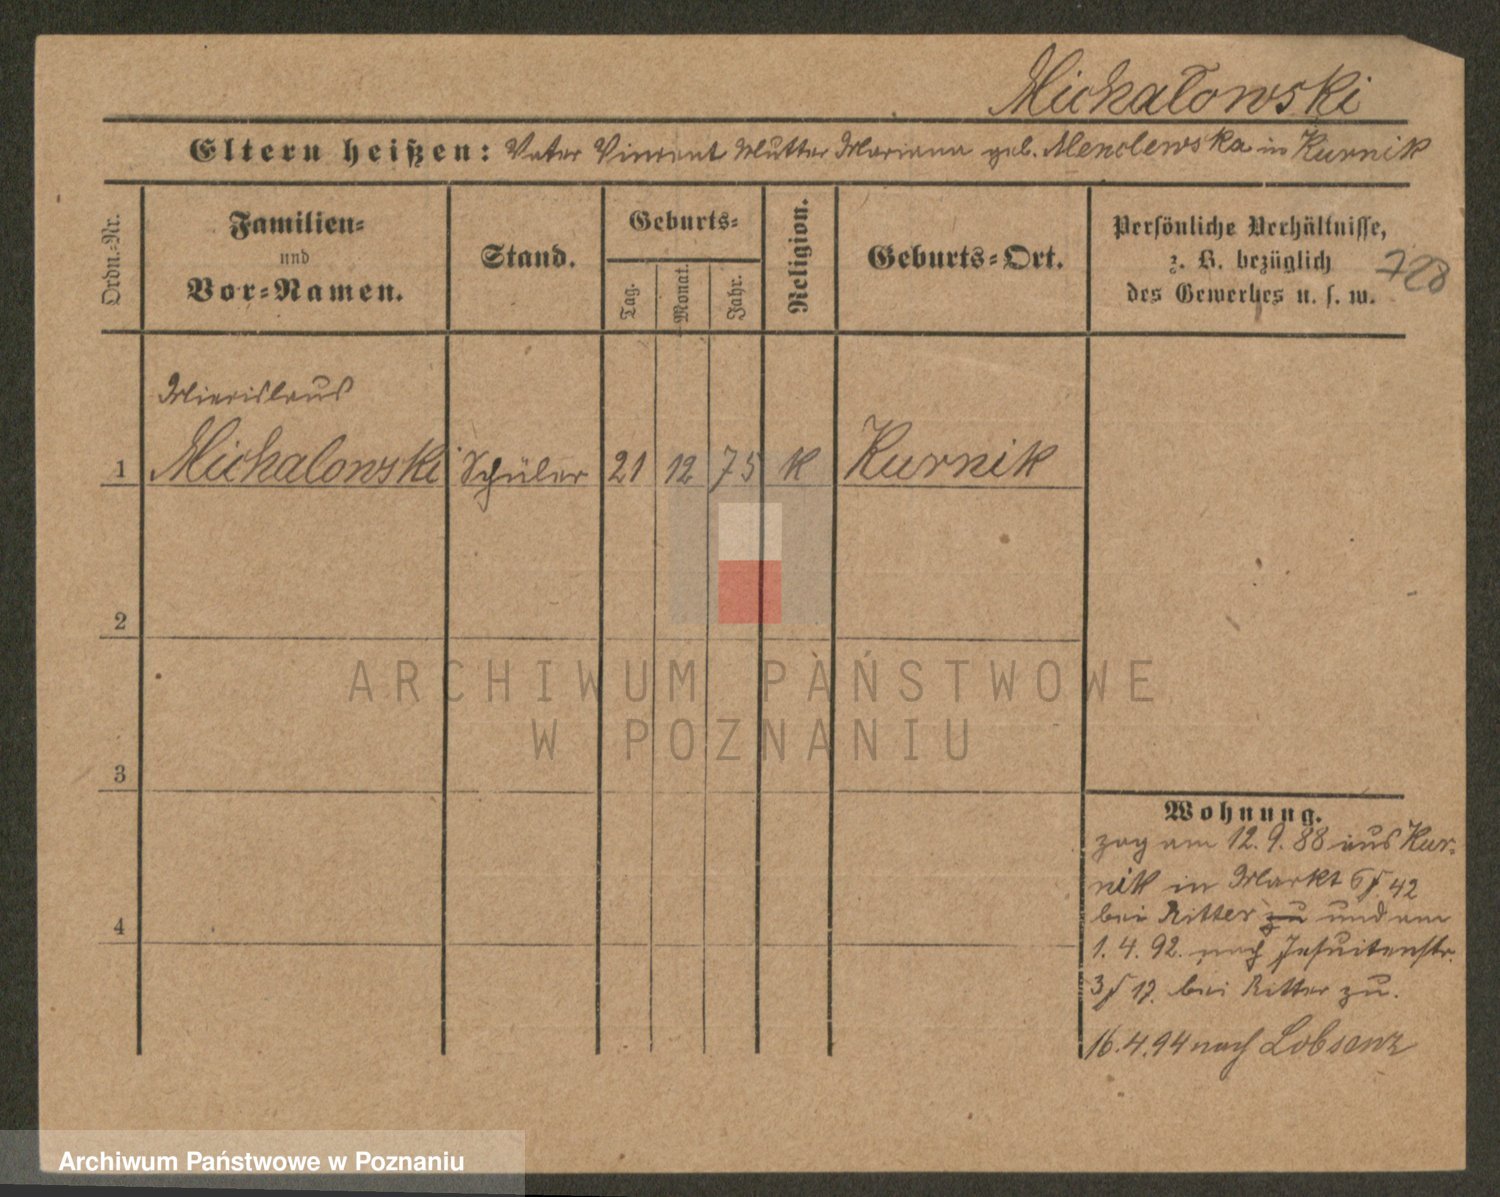 Michałowski
Eltern heißen: Vater Vincent Mutter Mariana geb. Mendlewska in Kurnik
Ordn.-Nr.
Familien-
und
Vor-Namen.
Stand.
Geburts-
Tag.
Monat.
Jahr.
Religion.
Geburts-Ort.
Persönliche Verhältnisse,
z. B. bezüglich
des Gewerbes u. s. w.
728
Miecislaus
1 Michalowski Schüler 21 12 75 K Kurnik
2
ARCHIWUM PAŃSTWOWE
W POZNANIU
3
4
Wohnung.
zog am 12. 9. 88 aus Kur-
nik in Markt 42
bei Ritter zu und am
1. 4. 92. nach Jesuitenstr.
3 17. bei Ritter zu.
16. 4. 94 nach Lobsenz
Archiwum Państwowe w Poznaniu